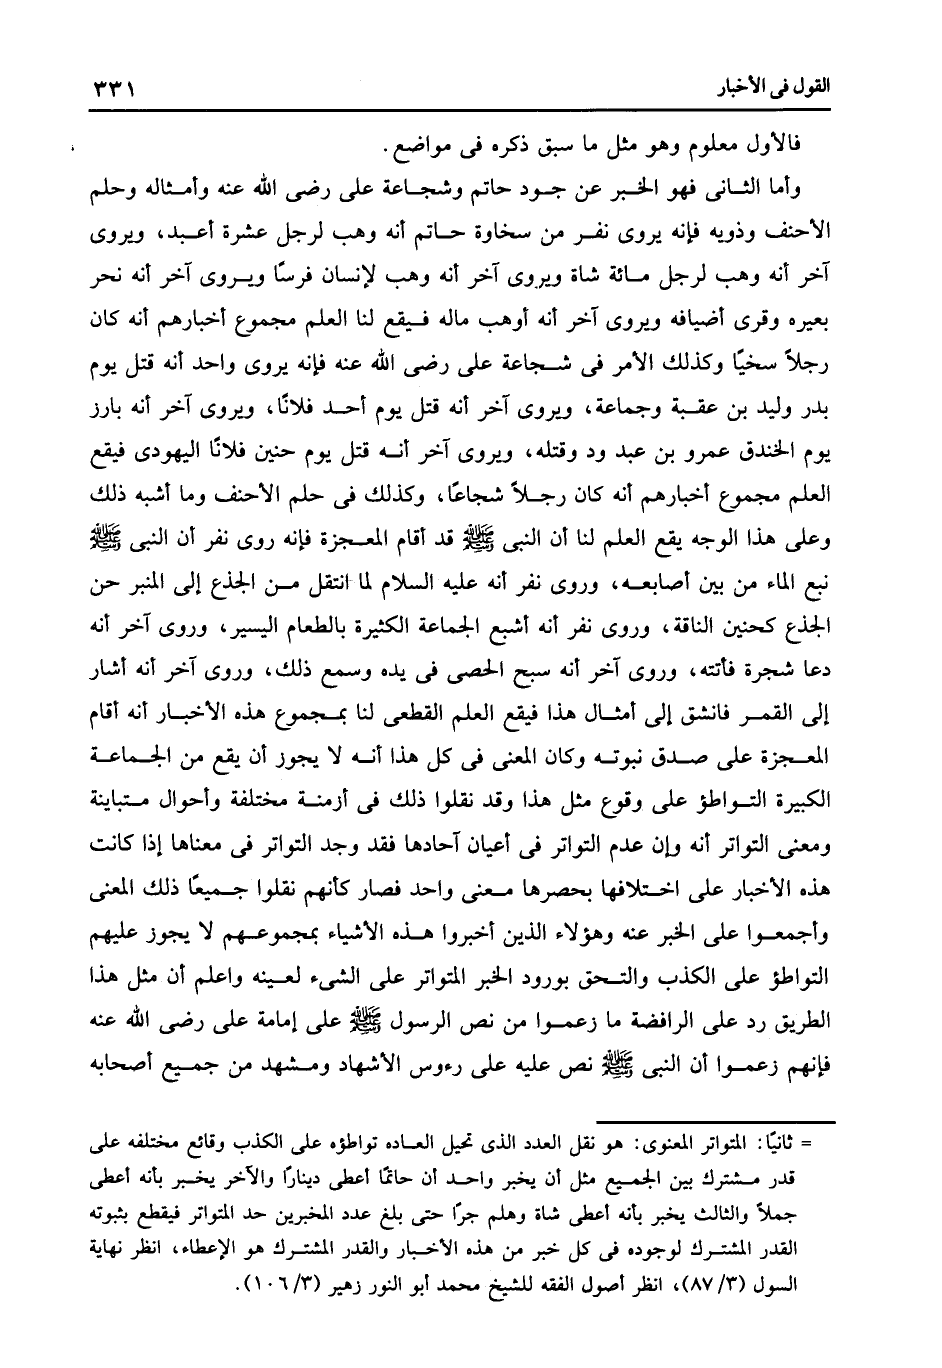 القول فى الأخبار
٣٣١
فالأول معلوم وهو مثل ما سبق ذكره فى مواضع.
وأما الثانى فهو الخبر عن جود حاتم وشجاعة على رضى الله عنه وأمثاله وحلم
الأحنف وذويه فإنه يروى نفر من سخاوة حاتم أنه وهب لرجل عشرة أعبد، ويروى
آخر أنه وهب لرجل مائة شاة ويروى آخر أنه وهب لإنسان فرسًا ويروى آخر أنه نحر
بعيره وقرى أضيافه ويروى آخر أنه أوهب ماله فيقع لنا العلم مجموع أخبارهم أنه كان
رجلاً سخيًا وكذلك الأمر فى شجاعة على رضى الله عنه فإنه يروى واحد أنه قتل يوم
بدر وليد بن عقبة وجماعة، ويروى آخر أنه قتل يوم أحد فلانًا، ويروى آخر أنه بارز
يوم الخندق عمرو بن عبد ود وقتله، ويروى آخر أنه قتل يوم حنين فلانًا اليهودى فيقع
العلم مجموع أخبارهم أنه كان رجلاً شجاعًا، وكذلك فى حلم الأحنف وما أشبه ذلك
وعلى هذا الوجه يقع العلم لنا أن النبى ﷺ قد أقام المعجزة فإنه روى نفر أن النبى ﷺ
نبع الماء من بين أصابعه، وروى نفر أنه عليه السلام لما انتقل من الجذع إلى المنبر حن
الجذع كحنين الناقة، وروى نفر أنه أشبع الجماعة الكثيرة بالطعام اليسير، وروى آخر أنه
دعا شجرة فأتته، وروى آخر أنه سبح الحصى فى يده وسمع ذلك، وروى آخر أنه أشار
إلى القمر فانشق إلى أمثال هذا فيقع العلم القطعى لنا بمجموع هذه الأخبار أنه أقام
المعجزة على صدق نبوته وكان المعنى فى كل هذا أنه لا يجوز أن يقع من الجماعة
الكبيرة التواطؤ على وقوع مثل هذا وقد نقلوا ذلك فى أزمنة مختلفة وأحوال متباينة
ومعنى التواتر أنه وإن عدم التواتر فى أعيان آحادها فقد وجد التواتر فى معناها إذا كانت
هذه الأخبار على اختلافها بحصرها معنى واحد فصار كأنهم نقلوا جميعًا ذلك المعنى
وأجمعوا على الخبر عنه وهؤلاء الذين أخبروا هذه الأشياء بمجموعهم لا يجوز عليهم
التواطؤ على الكذب والتحق بورود الخبر المتواتر على الشىء لعينه واعلم أن مثل هذا
الطريق رد على الرافضة ما زعموا من نص الرسول ﷺ على إمامة على رضى الله عنه
فإنهم زعموا أن النبى ﷺ نص عليه على رءوس الأشهاد ومشهد من جميع أصحابه
= ثانيًا: المتواتر المعنوى: هو نقل العدد الذى تحيل العاده تواطؤه على الكذب وقائع مختلفه على
قدر مشترك بين الجميع مثل أن يخبر واحد أن حاتمًا أعطى دينارًا والآخر يخبر بأنه أعطى
جملاً والثالث يخبر بأنه أعطى شاة وهلم جرًا حتى بلغ عدد المخبرين حد المتواتر فيقطع بثبوته
القدر المشترك لوجوده فى كل خبر من هذه الأخبار والقدر المشترك هو الإعطاء، انظر نهاية
السول (٣/ ٨٧)، انظر أصول الفقه للشيخ محمد أبو النور زهير (٣/ ١٠٦).